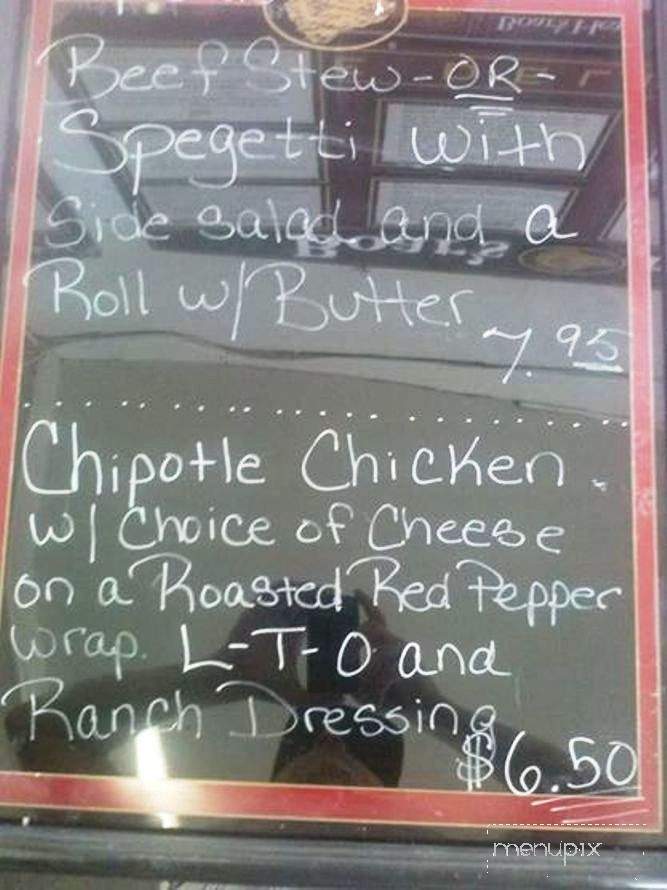 Boar's He
Beef Stew -OR-
Spegetti with
Side salad and a
Boar's
Roll w/ Butter
7.95
Chipotle Chicken.
w/ Choice of Cheese
on a Roasted Red Pepper
wrap. L-T-O and
Ranch Dressing
$6.50
menupix